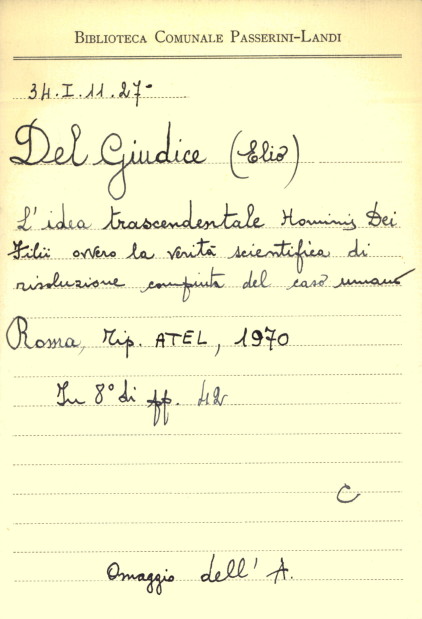 BIBLIOTECA COMUNALE PASSERINI-LANDI
34.I.11.27-
Del Giudice (Elio)
L'idea trascendentale Hominis Dei
Filii ovvero la verità scientifica di
risoluzione compiuta del caso umano
Roma, Tip. ATEL, 1970
In 8° di pp. 42
C
Omaggio dell'A.